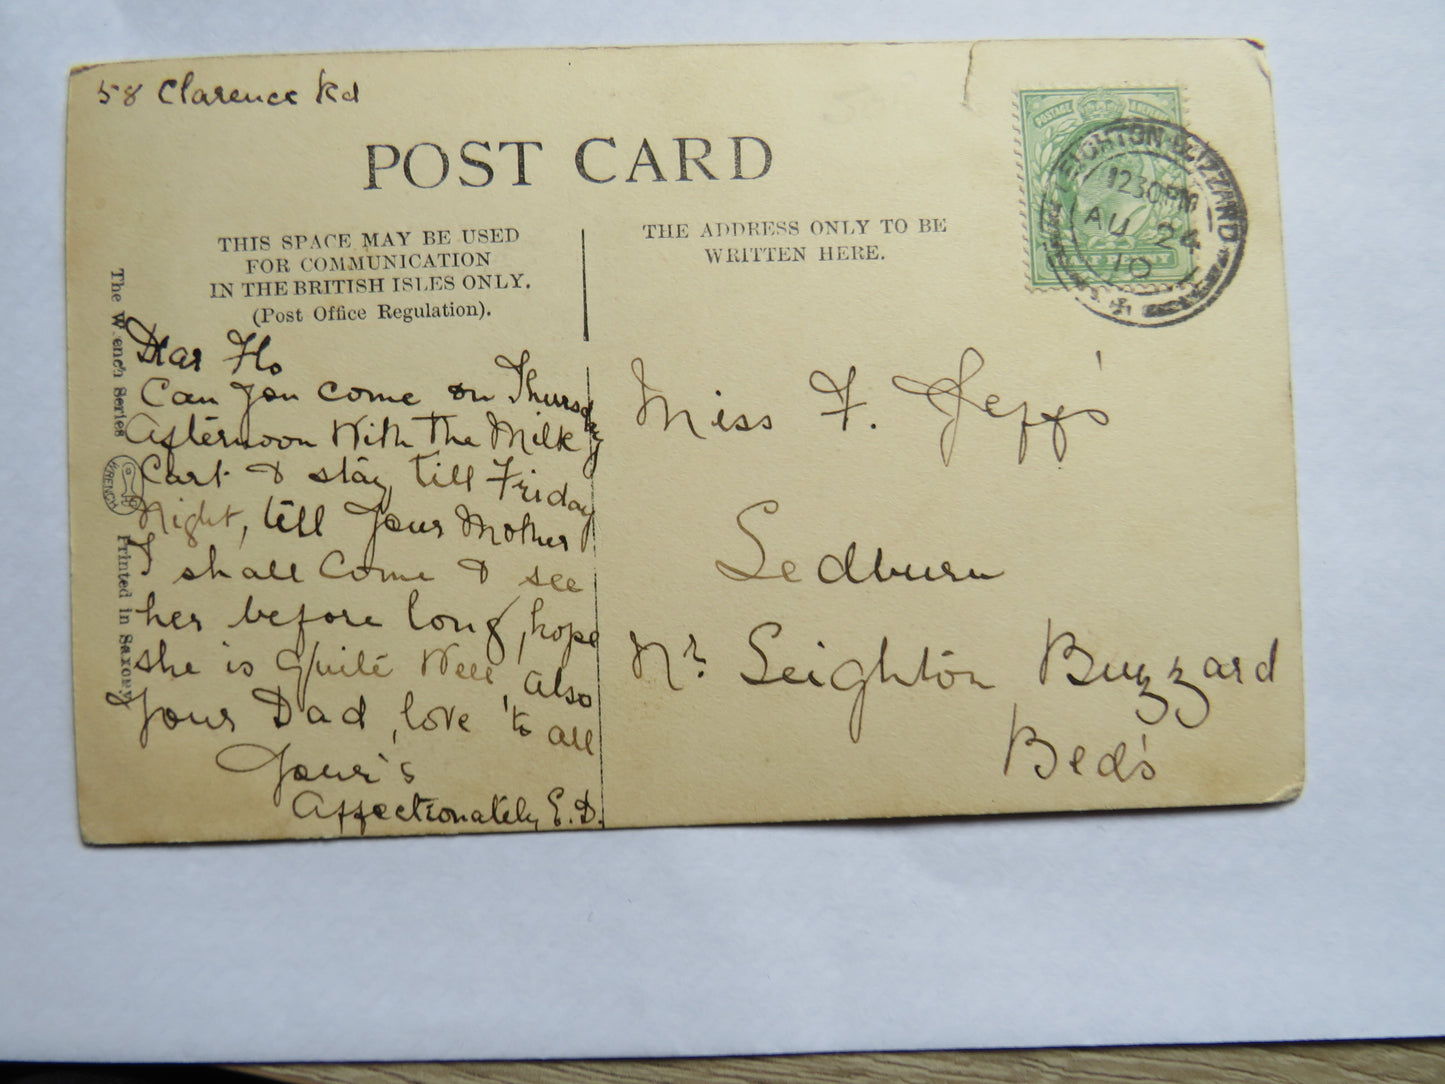 58 Clarence Rd
POST CARD
THIS SPACE MAY BE USED
FOR COMMUNICATION
IN THE BRITISH ISLES ONLY.
(Post Office Regulation).
THE ADDRESS ONLY TO BE
WRITTEN HERE.
POSTAGE
LEIGHTON-BUZZARD
1230PM
AU 24
10
The Wrench Series
WRENCH
Printed in Saxony
Dear Flo
Can you come on Thursday
Afternoon With the Milk
Cart & stay till Friday
Night, tell your Mother
I shall Come & see
her before long, hope
she is Quite Well, also
your Dad, love to all
Your's
Affectionately E. D.
Miss F. Jeffs'
Sedburn
Nr. Leighton Buzzard
Bed's